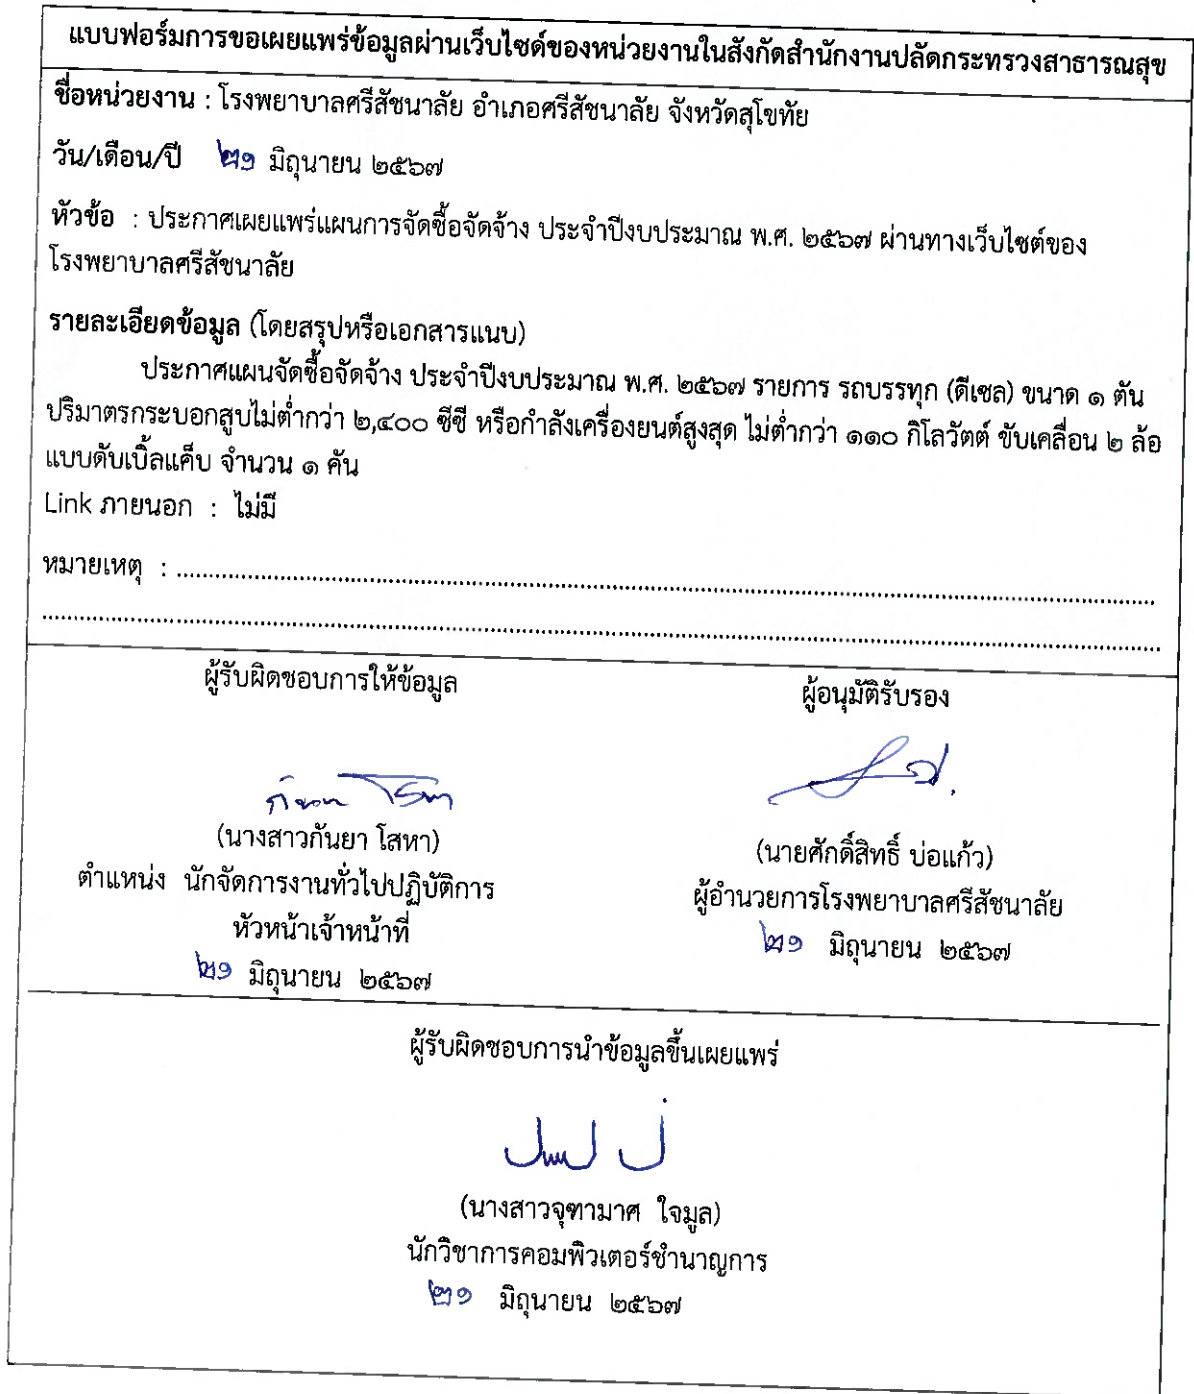 แบบฟอร์มการขอเผยแพร่ข้อมูลผ่านเว็บไซด์ของหน่วยงานในสังกัดสำนักงานปลัดกระทรวงสาธารณสุข
ชื่อหน่วยงาน : โรงพยาบาลศรีสัชนาลัย อำเภอศรีสัชนาลัย จังหวัดสุโขทัย
วัน/เดือน/ปี ๒๑ มิถุนายน ๒๕๖๗
หัวข้อ : ประกาศเผยแพร่แผนการจัดซื้อจัดจ้าง ประจำปีงบประมาณ พ.ศ. ๒๕๖๗ ผ่านทางเว็บไซต์ของ
โรงพยาบาลศรีสัชนาลัย
รายละเอียดข้อมูล (โดยสรุปหรือเอกสารแนบ)
ประกาศแผนจัดซื้อจัดจ้าง ประจำปีงบประมาณ พ.ศ. ๒๕๖๗ รายการ รถบรรทุก (ดีเซล) ขนาด ๑ ตัน
ปริมาตรกระบอกสูบไม่ต่ำกว่า ๒,๔๐๐ ซีซี หรือกำลังเครื่องยนต์สูงสุด ไม่ต่ำกว่า ๑๑๐ กิโลวัตต์ ขับเคลื่อน ๒ ล้อ
แบบดับเบิ้ลแค็บ จำนวน ๑ คัน
Link ภายนอก : ไม่มี
หมายเหตุ : ........................................................................................................
........................................................................................................................
ผู้รับผิดชอบการให้ข้อมูล
(นางสาวกันยา โสหา)
ตำแหน่ง นักจัดการงานทั่วไปปฏิบัติการ
หัวหน้าเจ้าหน้าที่
๒๑ มิถุนายน ๒๕๖๗
ผู้อนุมัติรับรอง
(นายศักดิ์สิทธิ์ บ่อแก้ว)
ผู้อำนวยการโรงพยาบาลศรีสัชนาลัย
๒๑ มิถุนายน ๒๕๖๗
ผู้รับผิดชอบการนำข้อมูลขึ้นเผยแพร่
(นางสาวจุฑามาศ ใจมูล)
นักวิชาการคอมพิวเตอร์ชำนาญการ
๒๑ มิถุนายน ๒๕๖๗